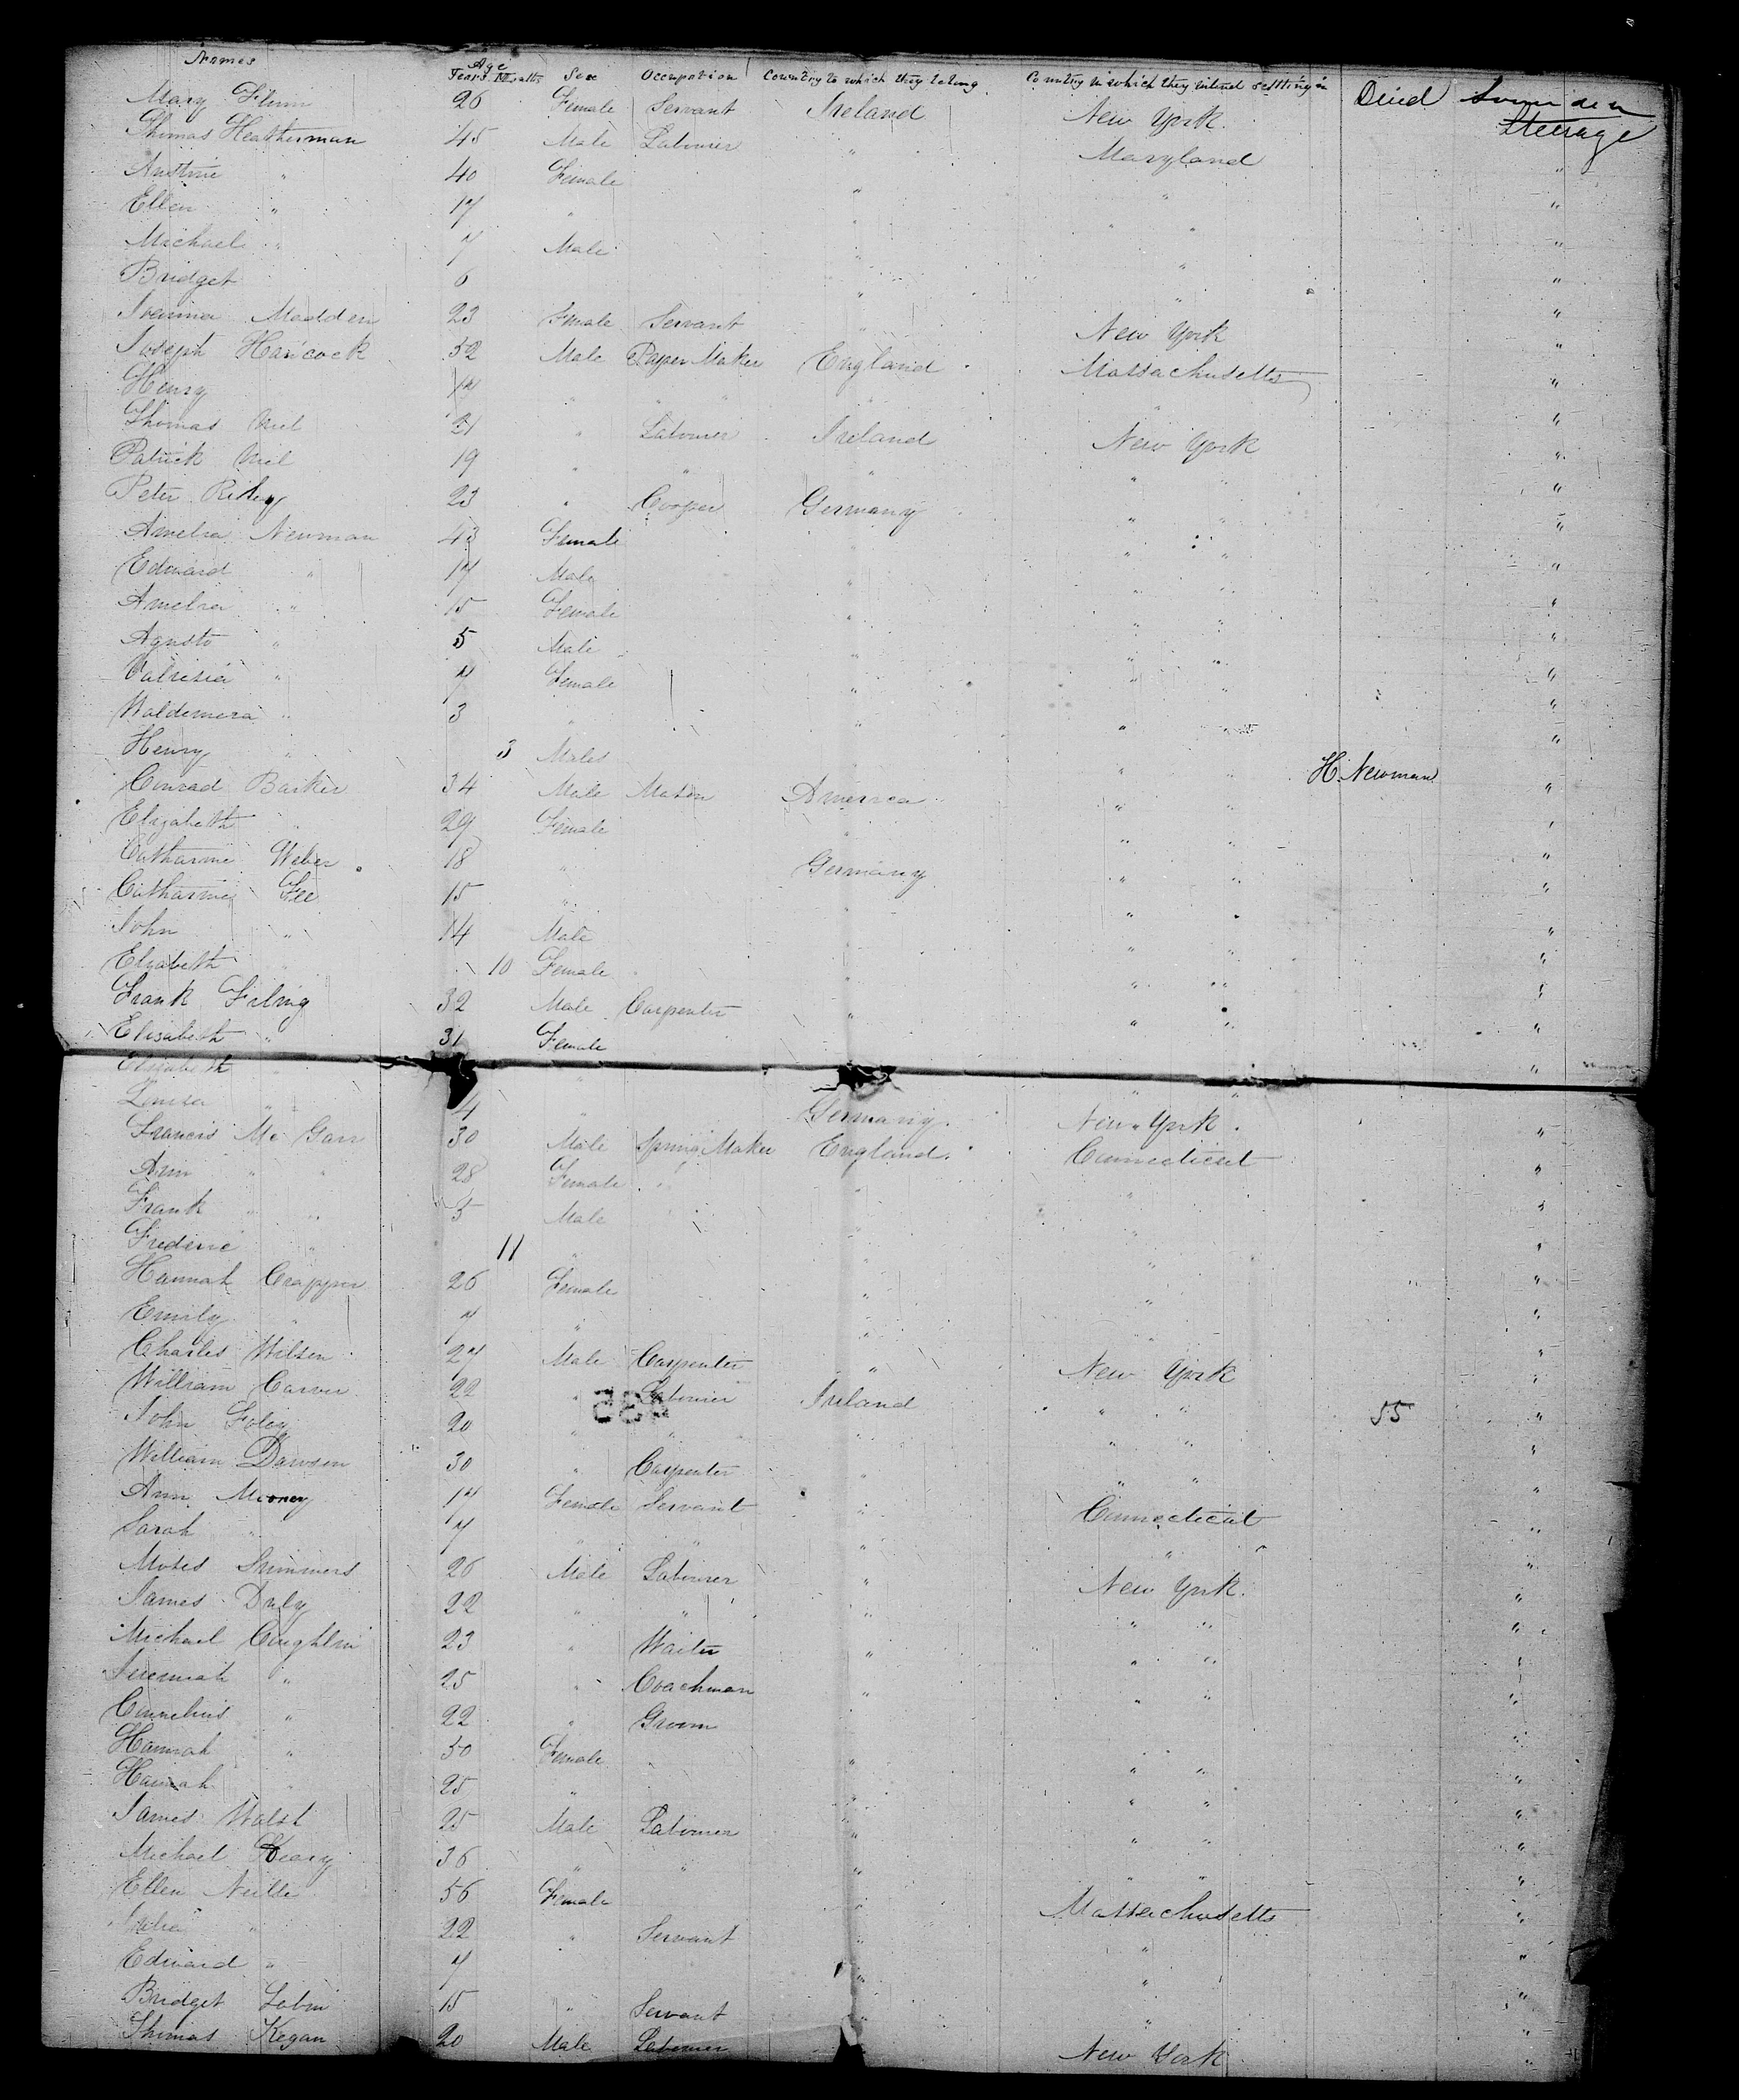 Names Age Years Months Sex Occupation Country to which they belong Country in which they intend settling in Died Steerage
Mary Flinn 26 Female Servant Ireland New York
Thomas Heatherman 45 Male Labourer " Maryland
" 40 Female " "
Ellen " 17 " " " "
Michael " 7 Male " "
Bridget 6 " "
Madden 23 Female Servant " New York "
Joseph Hancock 52 Male Paper Maker England Massachusetts "
Henry 14 " " " " " "
Thomas 21 " Labourer Ireland New York "
Patrick 19 " " " " " "
Peter 23 " Cooper Germany " " "
Amelia Newman 43 Female " " " "
Edward " 17 Male " " " "
Amelia " 15 Female " " " "
Agusto " 5 Male " " " "
" 7 Female " " " "
Waldemera " 3 " " " " "
Henry " 3 Males " " H. Newman
Conrad Barker 34 Male Mason America " " "
Elizabeth " 29 Female " " " "
Catharine Weber 18 " Germany " " "
Catharine Fee 15 " " " " "
John " 14 Male " " " "
Elizabeth " 10 Female " " " "
Frank 32 Male Carpenter " " " "
Elisabeth " 31 Female "
Elizabeth " " " "
Louisa " 4 " Germany New York
Francis Mc Garr 30 Male Spring Maker England Connecticut "
Ann " " 28 Female " " " "
Frank " " 5 Male " " "
Frederic " 11 " " " "
Hannah Crapper 26 Female " " "
Emily " 7 " " " "
Charles Wilson 27 Male Carpenter " New York "
William Carver 22 " Labourer Ireland " " 55 "
John Foley 20 " " " " " "
William Dawson 30 " Carpenter " " " "
Ann Mooney 14 Female Servant " Connecticut "
Sarah " 7 " " " " "
Moses Summers 26 Male Labourer " New York "
James Duly 22 " " " " " "
Michael Coughlin 23 " Waiter " " " "
Jeremiah " 25 " Coachman " " " "
Cornelius " 22 " Groom "
Hannah " 50 Female " " " "
Hannah " 25 " " " " "
James Walsh 25 Male Labourer " " " "
Michael 36 " " " " " "
Ellen 56 Female " Massachusetts "
Julia " 22 " Servant " " "
Edward " 7 " " "
Bridget 15 " Servant " " "
Thomas Kegan 20 Male Labourer New York "